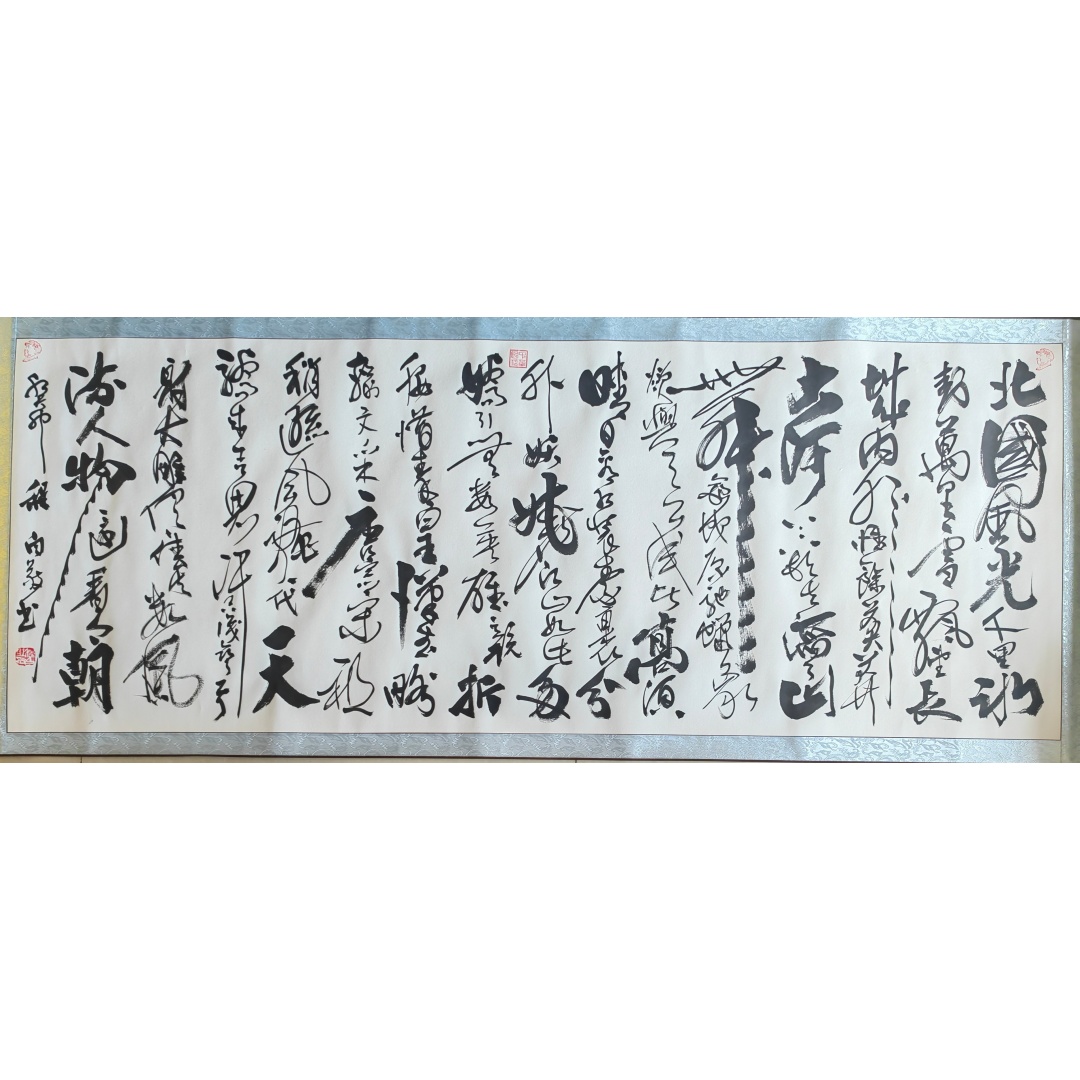 北國風光千里冰
封萬里雪飄望長
城内外惟餘莽莽
大河上下頓失滔滔山
舞銀蛇原馳蠟象
欲與天公試比高須
晴日看紅裝素裹分
外妖嬈江山如此多
嬌引無數英雄競折
腰惜秦皇漢武略
輸文采唐宗宋祖
稍遜風騷一代天
驕成吉思汗只識彎弓
射大雕俱往矣數風
流人物還看今朝
癸卯 书